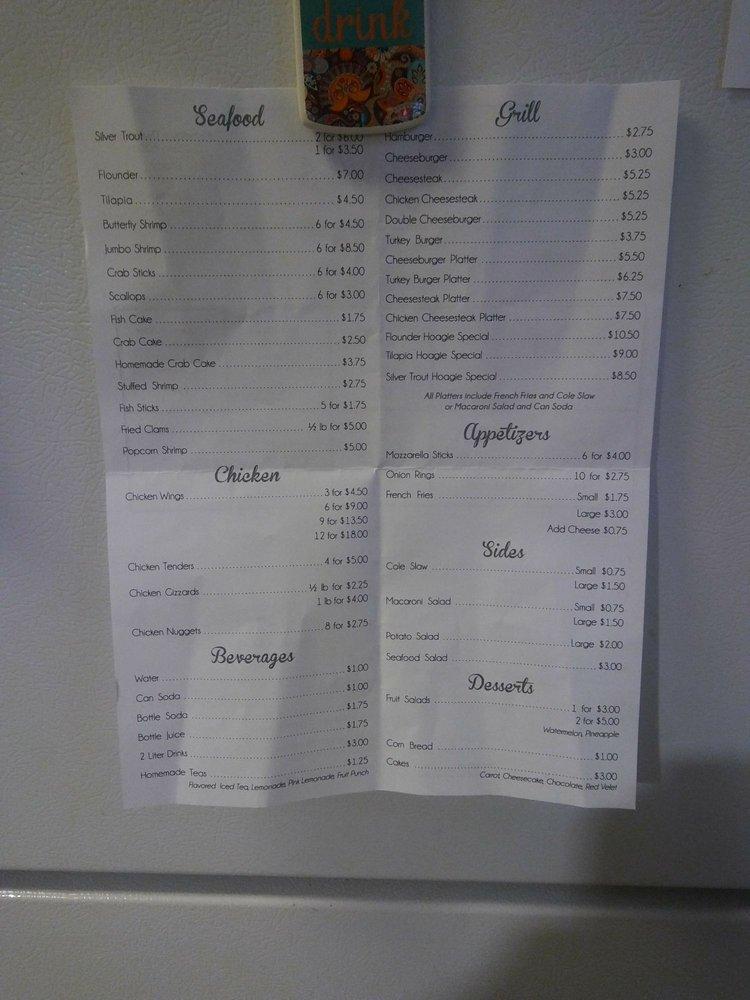 drink
Seafood
Silver Trout 2 for $6.00
1 for $3.50
Flounder $7.00
Tilapia $4.50
Butterfly Shrimp 6 for $4.50
Jumbo Shrimp 6 for $8.50
Crab Sticks 6 for $4.00
Scallops 6 for $3.00
Fish Cake $1.75
Crab Cake $2.50
Homemade Crab Cake $3.75
Stuffed Shrimp $2.75
Fish Sticks 5 for $1.75
Fried Clams ½ lb for $5.00
Popcorn Shrimp $5.00
Chicken
Chicken Wings 3 for $4.50
6 for $9.00
9 for $13.50
12 for $18.00
Chicken Tenders 4 for $5.00
Chicken Gizzards ½ lb for $2.25
1 lb for $4.00
Chicken Nuggets 8 for $2.75
Beverages
Water $1.00
Can Soda $1.00
Bottle Soda $1.75
Bottle Juice $1.75
2 Liter Drinks $3.00
Homemade Teas $1.25
Flavored Iced Tea, Lemonade, Pink Lemonade, Fruit Punch
Grill
Hamburger $2.75
Cheeseburger $3.00
Cheesesteak $5.25
Chicken Cheesesteak $5.25
Double Cheeseburger $5.25
Turkey Burger $3.75
Cheeseburger Platter $5.50
Turkey Burger Platter $6.25
Cheesesteak Platter $7.50
Chicken Cheesesteak Platter $7.50
Flounder Hoagie Special $10.50
Tilapia Hoagie Special $9.00
Silver Trout Hoagie Special $8.50
All Platters include French Fries and Cole Slaw
or Macaroni Salad and Can Soda
Appetizers
Mozzarella Sticks 6 for $4.00
Onion Rings 10 for $2.75
French Fries Small $1.75
Large $3.00
Add Cheese $0.75
Sides
Cole Slaw Small $0.75
Large $1.50
Macaroni Salad Small $0.75
Large $1.50
Potato Salad Large $2.00
Seafood Salad $3.00
Desserts
Fruit Salads 1 for $3.00
2 for $5.00
Watermelon, Pineapple
Corn Bread $1.00
Cakes $3.00
Carrot, Cheesecake, Chocolate, Red Velet